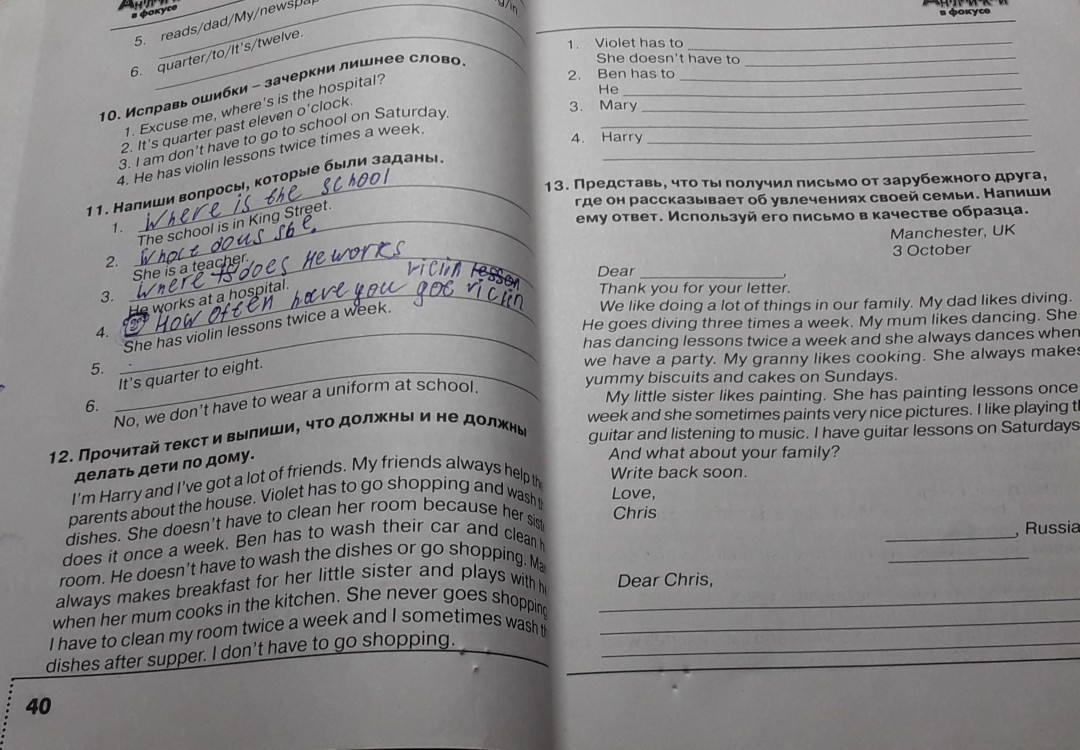 в фокусе
5. reads/dad/My/newspap
g/in
6. quarter/to/It's/twelve.
10. Исправь ошибки – зачеркни лишнее слово.
1. Excuse me, where's is the hospital?
2. It's quarter past eleven o'clock.
3. I am don't have to go to school on Saturday.
4. He has violin lessons twice times a week.
11. Напиши вопросы, которые были заданы.
1. Where is the school
The school is in King Street.
2. dous she.
She is a teacher.
3. Where does He works
He works at a hospital.
viclin lesson
4. How often have you goe viclin
She has violin lessons twice a week.
5.
It's quarter to eight.
6.
No, we don't have to wear a uniform at school.
12. Прочитай текст и выпиши, что должны и не должны
делать дети по дому.
I'm Harry and I've got a lot of friends. My friends always help th
parents about the house. Violet has to go shopping and wash t
dishes. She doesn't have to clean her room because her sist
does it once a week. Ben has to wash their car and clean h
room. He doesn't have to wash the dishes or go shopping. Ma
always makes breakfast for her little sister and plays with he
when her mum cooks in the kitchen. She never goes shopping
I have to clean my room twice a week and I sometimes wash t
dishes after supper. I don't have to go shopping.
40
в фокусе
1. Violet has to
She doesn't have to
2. Ben has to
He
3. Mary
4. Harry
13. Представь, что ты получил письмо от зарубежного друга,
где он рассказывает об увлечениях своей семьи. Напиши
ему ответ. Используй его письмо в качестве образца.
Manchester, UK
3 October
Dear ,
Thank you for your letter.
We like doing a lot of things in our family. My dad likes diving.
He goes diving three times a week. My mum likes dancing. She
has dancing lessons twice a week and she always dances when
we have a party. My granny likes cooking. She always makes
yummy biscuits and cakes on Sundays.
My little sister likes painting. She has painting lessons once
week and she sometimes paints very nice pictures. I like playing th
guitar and listening to music. I have guitar lessons on Saturdays
And what about your family?
Write back soon.
Love,
Chris
, Russia
Dear Chris,